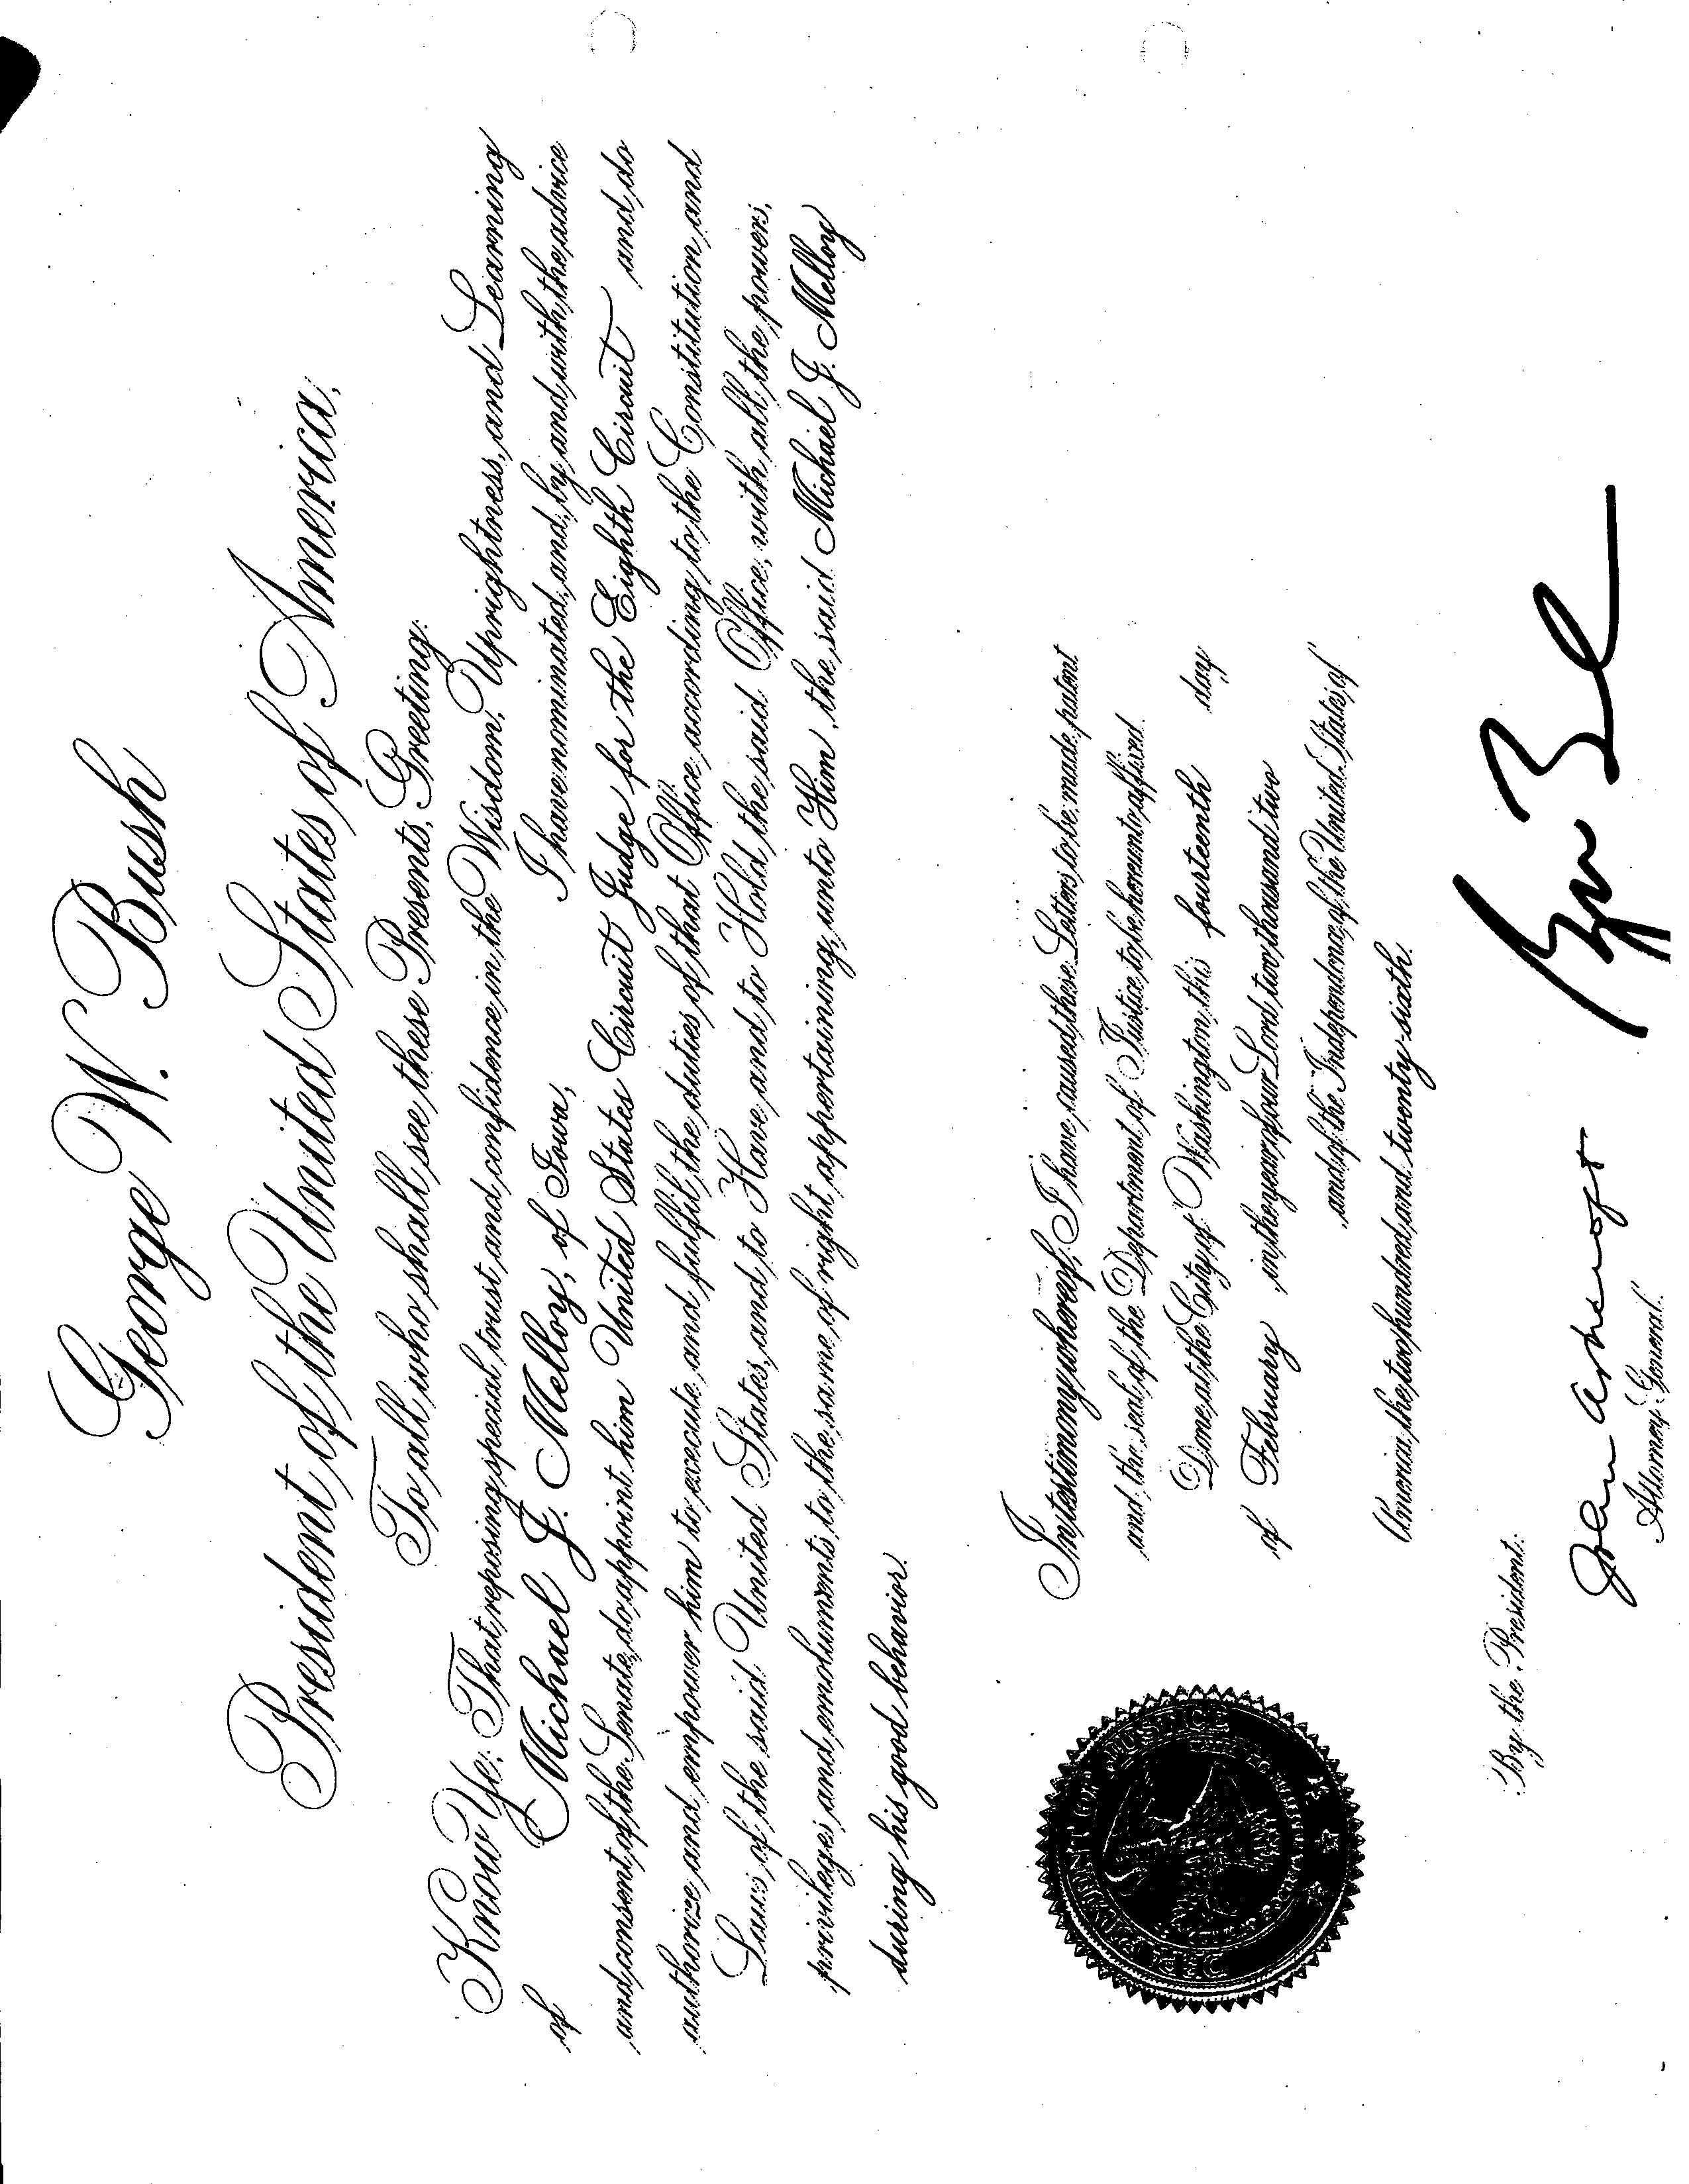 George W. Bush
President of the United States of America,
To all who shall see these Presents, Greeting:
Know Ye: That reposing special trust and confidence in the Wisdom, Uprightness, and Learning
of Michael J. Melloy, of Iowa, I have nominated, and, by and with the advice
and consent of the Senate, do appoint him United States Circuit Judge for the Eighth Circuit and do
authorize and empower him to execute and fulfil the duties of that Office according to the Constitution and
Laws of the said United States, and to Have and to Hold the said Office, with all the powers,
privileges and emoluments to the same of right appertaining, unto Him, the said Michael J. Melloy
during his good behavior.
In testimony whereof, I have caused these Letters to be made patent
and the seal of the Department of Justice to be hereunto affixed.
Done at the City of Washington, this fourteenth day
of February in the year of our Lord two thousand two
and of the Independence of the United States of
America the two hundred and twenty-sixth.
DEPARTMENT OF JUSTICE
By the President:
John Ashcroft
Attorney General.